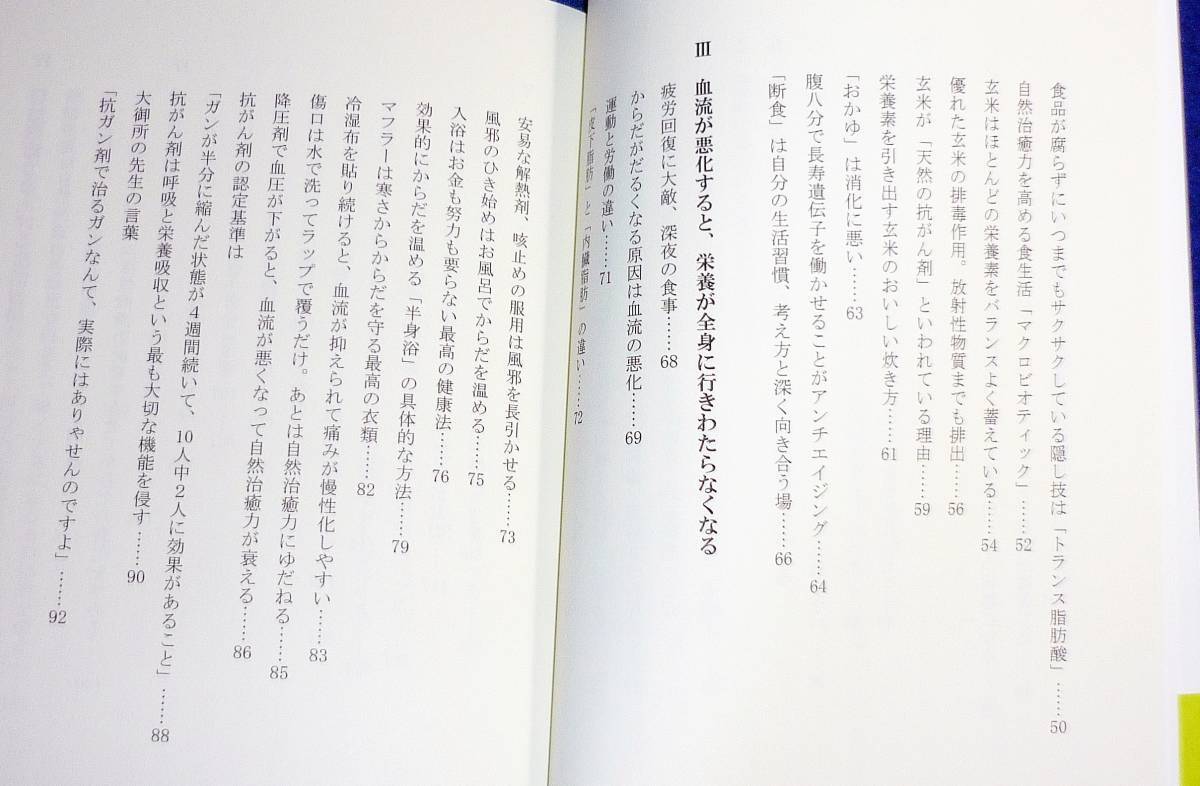 食品が腐らずにいつまでもサクサクしている隠し技は「トランス脂肪酸」……50
自然治癒力を高める食生活「マクロビオティック」……52
玄米はほとんどの栄養素をバランスよく蓄えている……54
優れた玄米の排毒作用。放射性物質までも排出……56
玄米が「天然の抗がん剤」といわれている理由……59
栄養素を引き出す玄米のおいしい炊き方……61
「おかゆ」は消化に悪い……63
腹八分で長寿遺伝子を働かせることがアンチエイジング……64
「断食」は自分の生活習慣、考え方と深く向き合う場……66
Ⅲ 血流が悪化すると、栄養が全身に行きわたらなくなる
疲労回復に大敵、深夜の食事……68
からだがだるくなる原因は血流の悪化……69
運動と労働の違い……71
「皮下脂肪」と「内臓脂肪」の違い……72
安易な解熱剤、咳止めの服用は風邪を長引かせる……73
風邪のひき始めはお風呂でからだを温める……75
入浴はお金も努力も要らない最高の健康法……76
効果的にからだを温める「半身浴」の具体的な方法……79
マフラーは寒さからからだを守る最高の衣類……82
冷湿布を貼り続けると、血流が抑えられて痛みが慢性化しやすい……83
傷口は水で洗ってラップで覆うだけ。あとは自然治癒力にゆだねる……85
降圧剤で血圧が下がると、血流が悪くなって自然治癒力が衰える……86
抗がん剤の認定基準は
「ガンが半分に縮んだ状態が4週間続いて、10人中2人に効果があること」……88
抗がん剤は呼吸と栄養吸収という最も大切な機能を侵す……90
大御所の先生の言葉
「抗ガン剤で治るガンなんて、実際にはありゃせんのですよ」……92